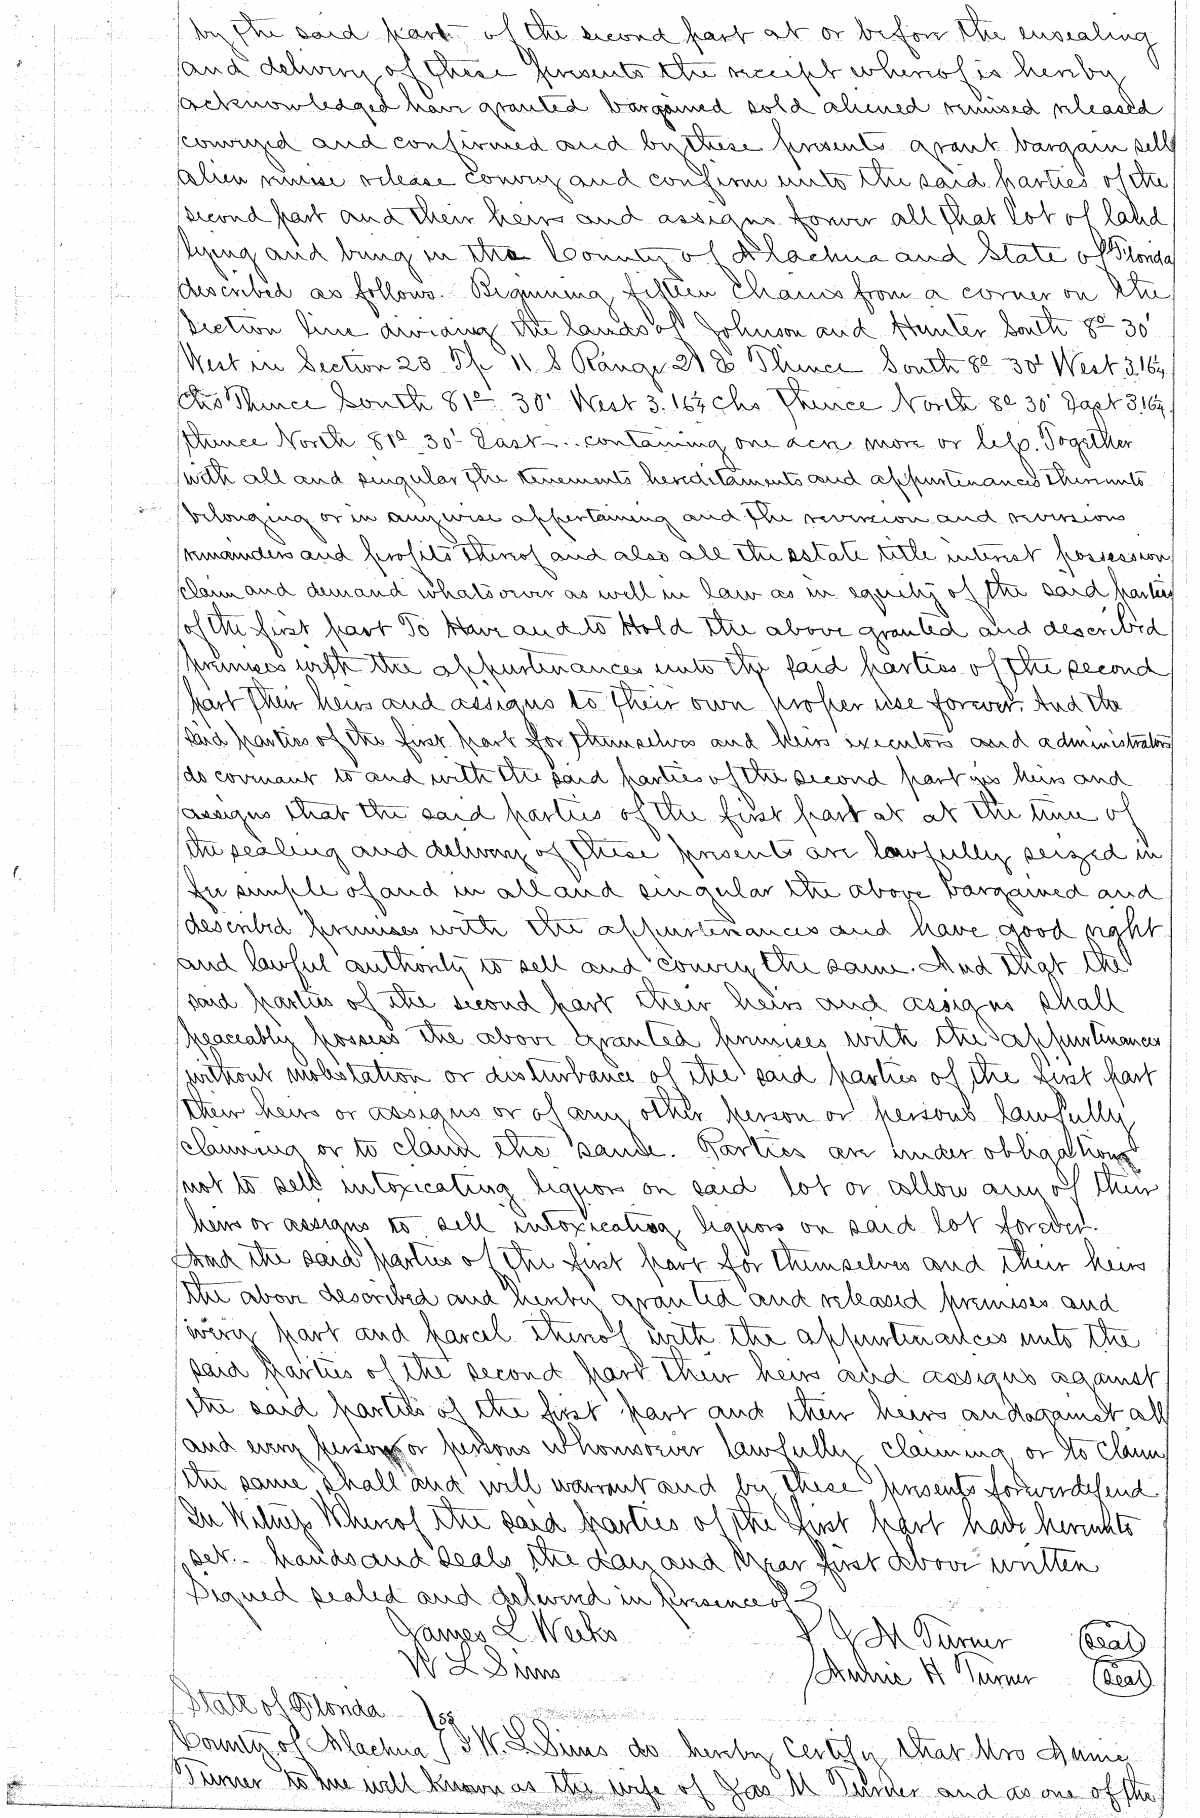 by the said part of the second part at or before the ensealing
and delivery of these presents the receipt whereof is hereby
acknowledged have granted bargained sold aliened remised released
conveyed and confirmed and by these presents grant bargain sell
alien remise release convey and confirm unto the said parties of the
second part and their heirs and assigns forever all that lot of land
lying and being in the County of Alachua and State of Florida
described as follows. Beginning fifteen chains from a corner on the
section line dividing the lands of Johnson and Hunter South 8° 30'
West in Section 23 Tp 11 S Range 21 E Thence South 8° 30' West 3.16¼
chs Thence South 81° 30' West 3.16¼ chs Thence North 8° 30' East 3.16¼
thence North 81° 30' East.. containing one acre more or less. Together
with all and singular the tenements hereditaments and appurtenances thereunto
belonging or in anywise appertaining and the reversion and reversions
remainders and profits thereof and also all the estate title interest possession
claim and demand whatsoever as well in law as in equity of the said parties
of the first part To Have and to Hold the above granted and described
premises with the appurtenances unto the said parties of the second
part their heirs and assigns to their own proper use forever. And the
said parties of the first part for themselves and heirs executors and administrators
do covenant to and with the said parties of the second part heirs and
assigns that the said parties of the first part at at the time of
the sealing and delivery of these presents are lawfully seized in
fee simple of and in all and singular the above bargained and
described premises with the appurtenances and have good right
and lawful authority to sell and convey the same. And that the
said parties of the second part their heirs and assigns shall
peaceably possess the above granted premises with the appurtenances
without molestation or disturbance of the said parties of the first part
their heirs or assigns or of any other person or persons lawfully
claiming or to claim the same. Parties are under obligations
not to sell intoxicating liquors on said lot or allow any of their
heirs or assigns to sell intoxicating liquors on said lot forever.
And the said parties of the first part for themselves and their heirs
the above described and hereby granted and released premises and
every part and parcel thereof with the appurtenances unto the
said parties of the second part their heirs and assigns against
the said parties of the first part and their heirs and against all
and every person or persons whomsoever lawfully claiming or to claim
the same shall and will warrant and by these presents forever defend
In Witness Whereof the said parties of the first part have hereunto
set.. hands and seals the day and year first above written
Signed sealed and delivered in presence of }
James L Weeks J M Turner (Seal)
W L Sims Annie H Turner (Seal)
State of Florida } ss
County of Alachua } I W. L Sims do hereby certify that Mrs Annie
Turner to me well known as the wife of Jas M Turner and as one of the